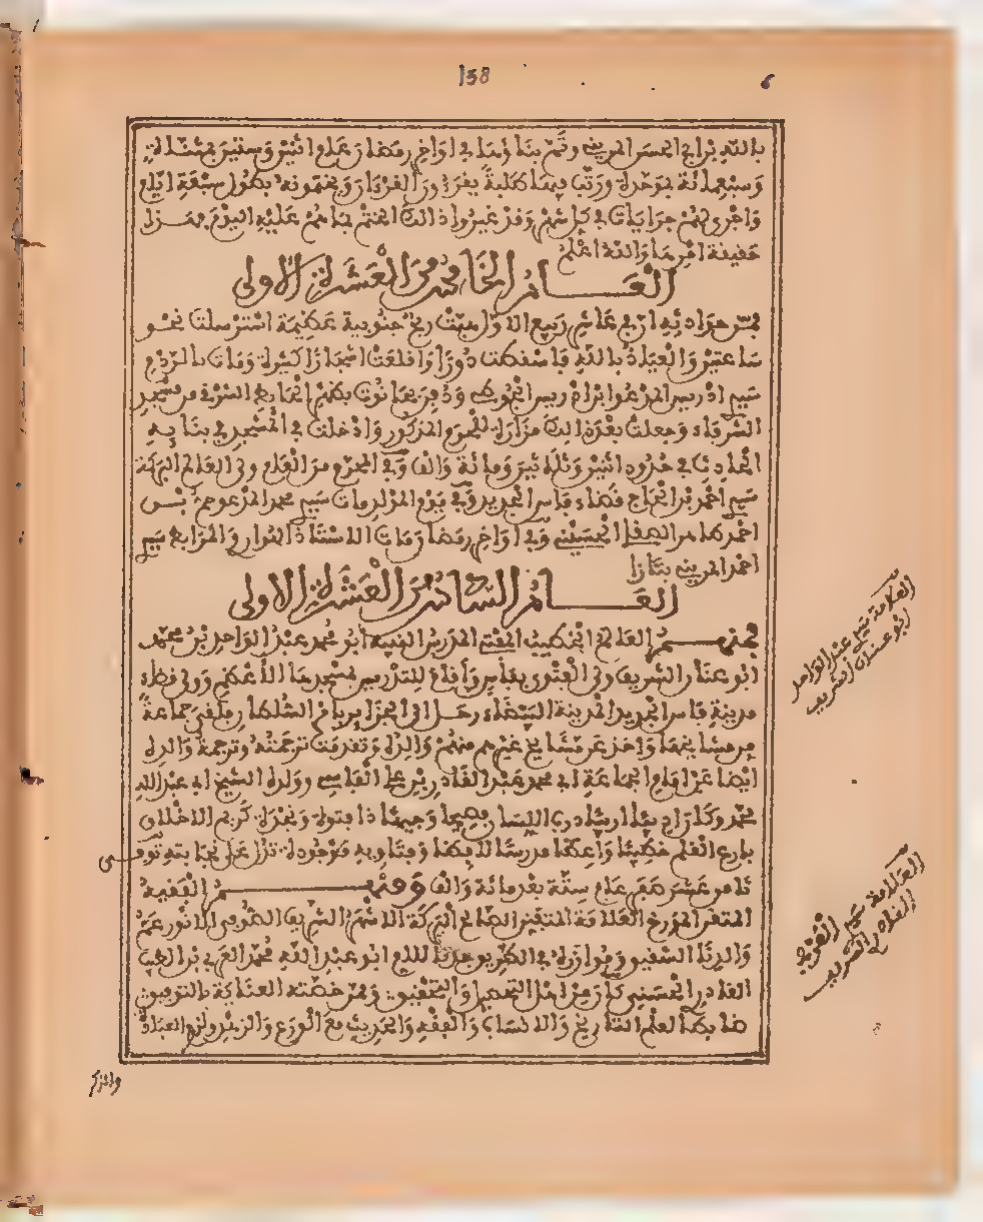 158
6
بالله بن ابي الحسن المريني وتم بناؤها في اواخر رمضان عام اثنين وستين
وسبعمائة ورتب فيها طلبة يقرءون القرءان ويختمونه سبعة ايام
واجرى لهم جرايات وقد غيروا ذالك اليوم
حقيقة امرها والله اعلم
العام الخامس من العشرة الاولى
فمن حوادثه رابع عاشر ربيع الاول هبت ريح جنوبية عظيمة استرسلت نحو
ساعتين والعياذ بالله فاسقطت دورا واقلعت اشجارا كثيرة ومات بالردم
سيدي ادريس المدعو ابراد بن ادريس الجوطي ودفن بحانوت بظهر الجامع من مسجد
الشرفاء وجعلت بعد ذالك مزارة للمحرم المذكور وادخلت في المسجد في بنائه
الحادث في حدود اثنين وثلاثين ومائة والف وفي المحرم من العام ولي العالم البركة
سيدي احمد بن الحاج قضاء فاس الجديد وفي يوم المولد مات سيدي محمد المدعو حم بن
احمد طاهر الصقلي الحسيني وفي اواخر رمضان مات الاستاذ المرابع سيدي
احمد المريني بتازا
العام السادس من العشرة الاولى
فمنهم العالم الخطيب المفتي المدرس الفقيه ابو محمد عبد الواحد بن محمد
ابو عنان الشريف ولي الفتوى بفاس واقام للتدريس بمسجدها الاعظم وولي قضاء
مدينة فاس الجديد المدينة البيضاء رحل الى الجزاير باذن السلطان فلقي جماعة
من مشايخها واخذ عن مشايخ غيرهم منهم والده وتقدمت ترجمته وترجمة والده
ايضا عن امام الجماعة ابي محمد عبد القادر بن علي الفاسي وولده الشيخ ابي عبد الله
محمد وكان اديبا اريبا درب اللسان فصيحا وجيها ذا بتوة ونجدة كريم الاخلاق
بارع القلم خطيبا واعظا مدرسا لافظا وفتاويه موجودة تدل على نجابته توفي
ثامن عشر صفر عام ستة بعد مائة والف ومنهم الفقيه
المتقن المؤرخ العلامة المتفنن الصالح البركة الاشهر الشريف الصوفي الانور عم
والدنا الشقيق وموازره في الطريق جدنا للام ابو عبد الله محمد العربي بن الطيب
القادري الحسني كان من اهل التحصيل والتحقيق وممن خصته العناية بالتوفيق
ضابطا لعلم التاريخ والانساب والفقه والحديث مع الورع والزهد ولزم العبادة
والذكر
العلامة سيدي عبد الواحد
ابو عنان الشريف
العلامة سيدي العربي
القادري الشريف